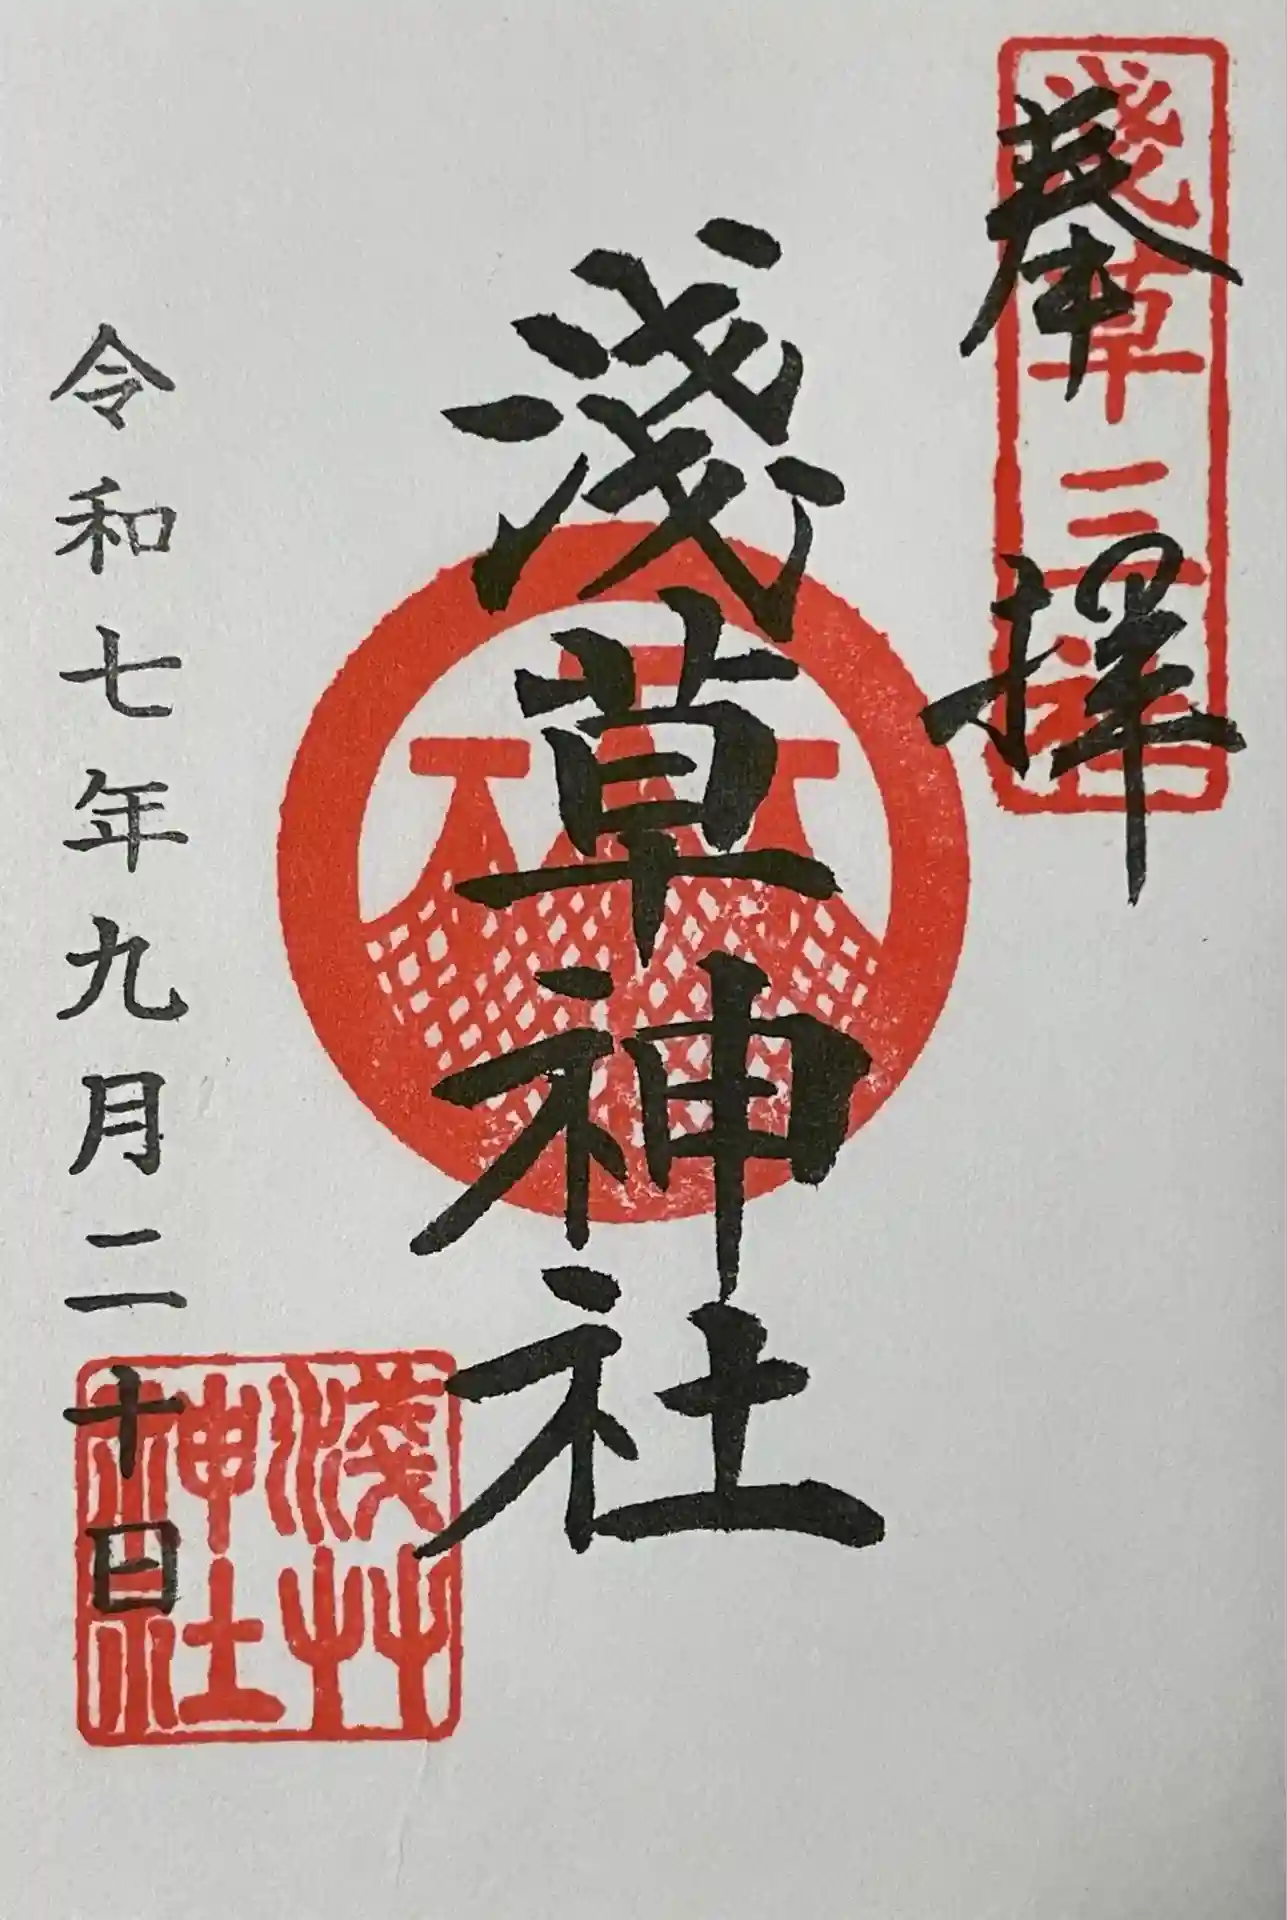 奉拝
淺草三社
淺草神社
令和七年九月二十日
淺艸
神社